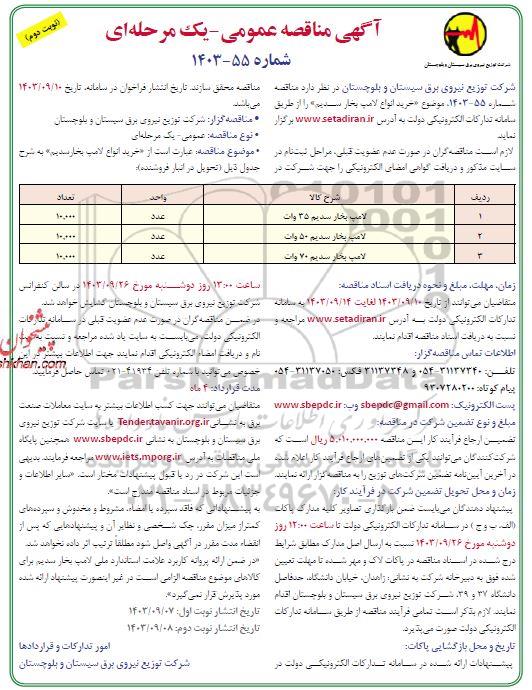 (نوبت دوم)
آگهی مناقصه عمومی-یک مرحله‌ای
شماره ۵۵-۱۴۰۳
شرکت توزیع نیروی برق سیستان و بلوچستان
شرکت توزیع نیروی برق سیستان و بلوچستان در نظر دارد مناقصه
شماره ۵۵-۱۴۰۳، موضوع «خرید انواع لامپ بخار سدیم» را از طریق
سامانه تدارکات الکترونیکی دولت به آدرس www.setadiran.ir برگزار
نماید.
لازم است مناقصه‌گران در صورت عدم عضویت قبلی، مراحل ثبت‌نام در
سایت مذکور و دریافت گواهی امضای الکترونیکی را جهت شرکت در
مناقصه محقق سازند. تاریخ انتشار فراخوان در سامانه، تاریخ ۱۴۰۳/۰۹/۱۰
می‌باشد.
• مناقصه‌گزار: شرکت توزیع نیروی برق سیستان و بلوچستان
• نوع مناقصه: عمومی- یک مرحله‌ای
• موضوع مناقصه: عبارت است از «خرید انواع لامپ بخارسدیم» به شرح
جدول ذیل (تحویل در انبار فروشنده):
ردیف شرح کالا واحد تعداد
۱ لامپ بخار سدیم ۳۵ وات عدد ۱۰,۰۰۰
۲ لامپ بخار سدیم ۵۰ وات عدد ۱۰,۰۰۰
۳ لامپ بخار سدیم ۷۰ وات عدد ۱۰,۰۰۰
زمان، مهلت، مبلغ و نحوه دریافت اسناد مناقصه:
متقاضیان می‌توانند از تاریخ ۱۴۰۳/۰۹/۱۰ لغایت ۱۴۰۳/۰۹/۱۴ به سامانه
تدارکات الکترونیکی دولت به آدرس www.setadiran.ir مراجعه و
نسبت به دریافت اسناد مناقصه اقدام نمایند.
اطلاعات تماس مناقصه‌گزار:
تلفـن: ۳۱۱۳۷۲۴۰-۰۵۴ و ۳۱۱۳۷۲۴۸ فکس: ۳۱۱۳۷۰۵۰-۰۵۴
پیام کوتاه: ۹۳۰۷۲۸۰۲۰۰
پست الکترونیک: sbepdc@gmail.com وب: www.sbepdc.ir
مبلغ و نوع تضمین شرکت در مناقصه:
تضمیـن ارجاع فرآیند کار ایـن مناقصه ۵.۰۱۰.۰۰۰.۰۰۰ ریال است که
شرکت‌کنندگان می‌توانند یکی از تضمین‌های ارجاع فرآیند کار اعلام شده
در آخرین آیین‌نامه تضمین شرکت‌های توزیع را به مناقصه‌گزار ارائه نمایند.
زمان و محل تحویل تضمین شرکت در فرآیند کار:
پیشنهاد دهندگان می‌بایست ضمن بارگذاری تصاویر کلیه مدارک پاکات
(الف، ب و ج) در سامانه تدارکات الکترونیکی دولت تا ساعت ۱۲:۰۰ روز
دوشنبه مورخ ۱۴۰۳/۰۹/۲۶ نسبت به ارسال اصل مدارک مطابق شرایط
درج شـده در اسـناد مناقصه در پاکات لاک و مهر شـده تا مهلت تعیین
شده فوق به دبیرخانه شرکت به نشانی: زاهدان، خیابان دانشگاه، حدفاصل
دانشگاه ۳۷ و ۳۹، شـرکت توزیع نیروی برق سیستان و بلوچستان اقدام
نمایند. لازم بذکر است تمامی فرآیند مناقصه از طریق سـامانه تدارکات
الکترونیکی دولت صورت می‌پذیرد.
تاریخ و محل بازگشایی پاکات:
پیشـنهادات ارائه شـده در سامانه تـدارکات الکترونیکـی دولت در
ساعت ۱۳:۰۰ روز دوشـنبه مورخ ۱۴۰۳/۰۹/۲۶ در سالن کنفرانس
شرکت توزیع نیروی برق سیستان و بلوچستان گشایش خواهد شد.
در ضمـن مناقصه‌گران در صورت عدم عضویت قبلی در سـامانه تدارکات
الکترونیکی دولت، می‌بایسـت به سایت یاد شده مراجعه و نسبت به ثبت
نام و دریافت امضاء الکترونیکی اقدام نمایند جهت اطلاعات بیشتر در این
خصوص می‌توانید با شماره تلفن ۴۱۹۳۴-۰۲۱ تماس حاصل فرمایید.
مدت قرارداد: ۴ ماه
متقاضیان می‌توانند جهت کسب اطلاعات بیشتر به سایت معاملات صنعت
برق به نشـانی Tender.tavanir.org.ir یا سایت شرکت توزیع نیروی
برق سیستان و بلوچستان به نشانی www.sbepdc.ir همچنین پایگاه
ملی مناقصات به آدرس www.iets.mporg.ir مراجعه فرمایند. بدیهی
است این شرکت در رد یا قبول پیشنهادات مختار است. «سایر اطلاعات و
جزئیات مربوط در اسناد مناقصه مندرج است».
به پیشنهاداتی که فاقد سپرده یا امضاء، مشروط و مخدوش و سپرده‌های
کمتراز میزان مقرر، چک شخصی و نظایر آن و پیشنهادهایی که پس از
انقضاء مدت مقرر در آگهی واصل شود مطلقاً ترتیب اثر داده نخواهد شد.
«در ضمن ارائه پروانه کاربرد علامت استاندارد ملی لامپ بخار سدیم برای
کالاهای موضوع مناقصه الزامی اسـت در غیر اینصورت پیشنهاد ارائه شده
مورد پذیرش قرار نمی‌گیرد».
تاریخ انتشار نوبت اول: ۱۴۰۳/۰۹/۰۷
تاریخ انتشار نوبت دوم: ۱۴۰۳/۰۹/۰۸
امور تدارکات و قراردادها
شرکت توزیع نیروی برق سیستان و بلوچستان
پیشخوان